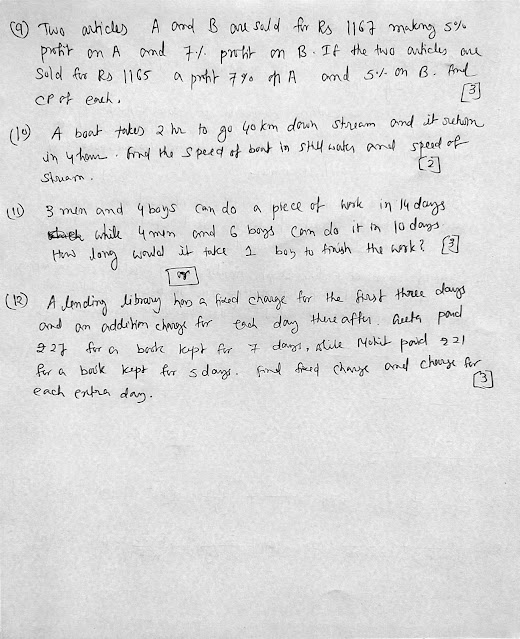 (9) Two articles A and B are sold for Rs 1167 making 5%
profit on A and 7% profit on B. If the two articles are
sold for Rs 1165 a profit 7% on A and 5% on B. find
CP of each. [3]
(10) A boat takes 2 hr to go 40 km down stream and it return
in 4 hour. find the speed of boat in still water and speed of
stream. [2]
(11) 3 men and 4 boys can do a piece of work in 14 days
while 4 men and 6 boys can do it in 10 days.
How long would it take 1 boy to finish the work? [3]
or
(12) A lending library has a fixed charge for the first three days
and an addition charge for each day thereafter. Geeta paid
₹27 for a book kept for 7 days, while Mohit paid ₹21
for a book kept for 5 days. find fixed charge and charge for
each extra day. [3]